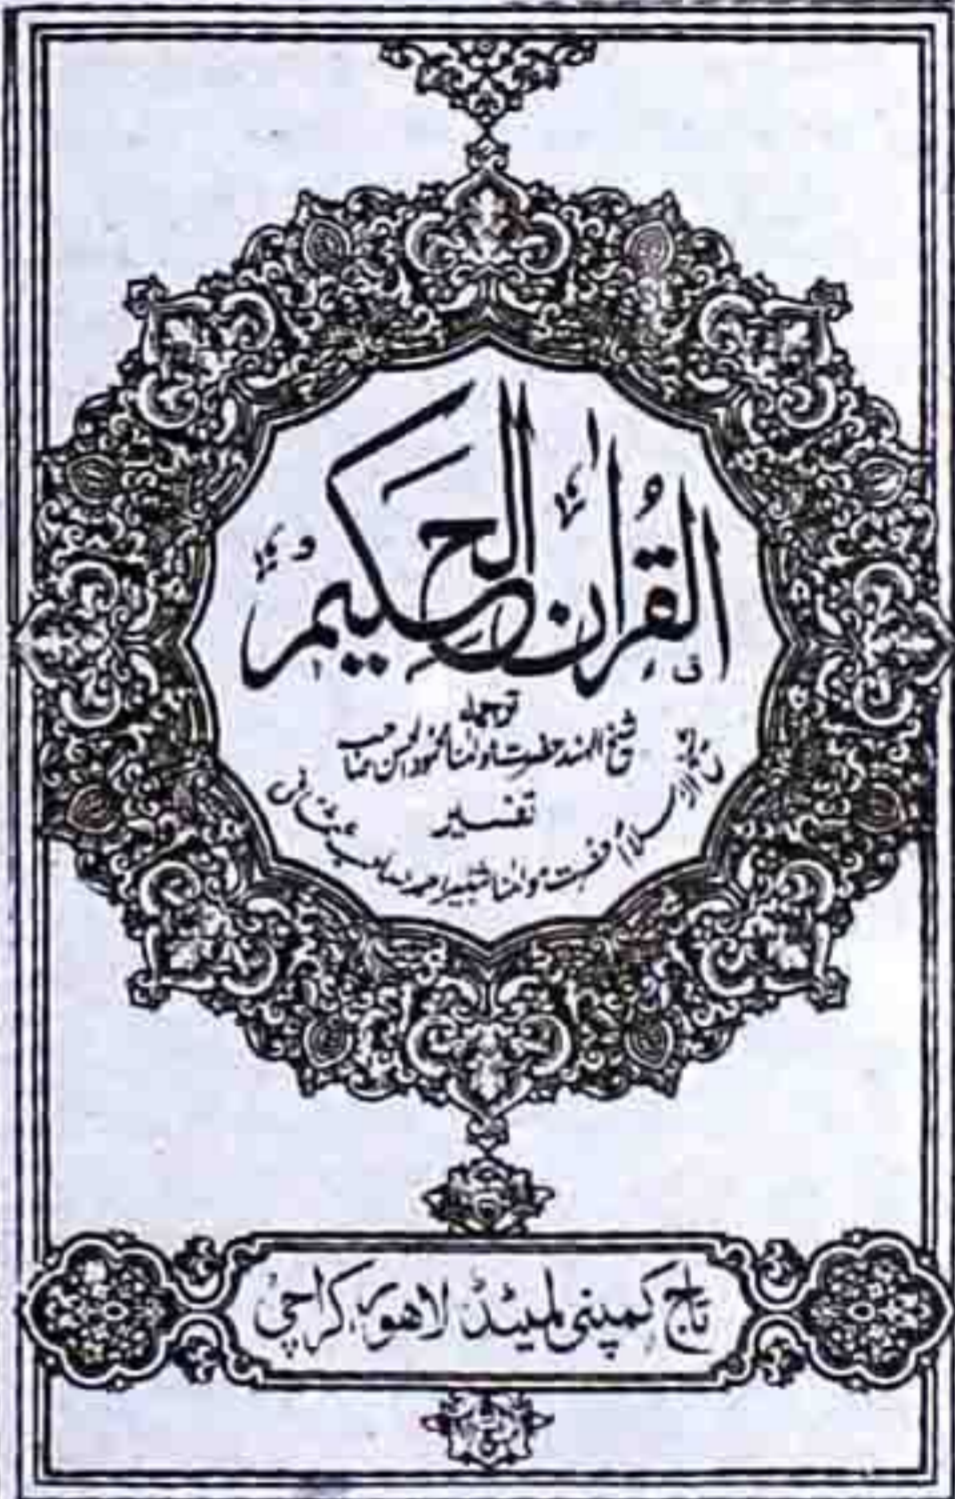 القُرآن الحكيم
ترجمہ
شیخ الہند حضرت مولٰنا محمود الحسن صاحب
تفسیر
حضرت مولٰنا شبیر احمد صاحب عثمانی
تاج کمپنی لمیٹڈ لاھور، کراچی